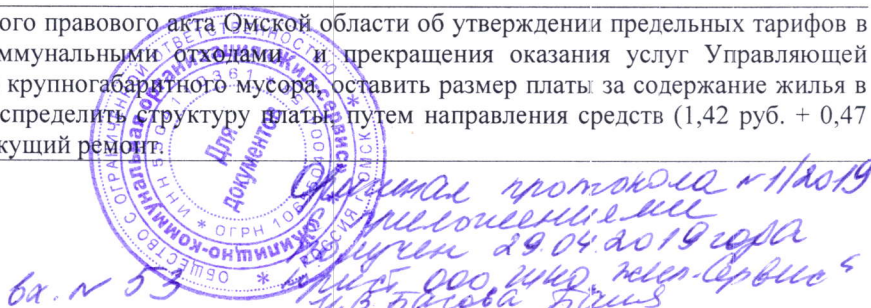 ого правового акта Омской области об утверждении предельных тарифов в
ммунальными отходами и прекращения оказания услуг Управляющей
крупногабаритного мусора, оставить размер платы за содержание жилья в
спределить структуру платы, путем направления средств (1,42 руб. + 0,47
кущий ремонт.
Для
документов
Оригинал протокола № 1/2019
с приложениями
получен 29.04.2019 года
вх. № 53
юрист ООО "ЖКО "Жил-Сервис"